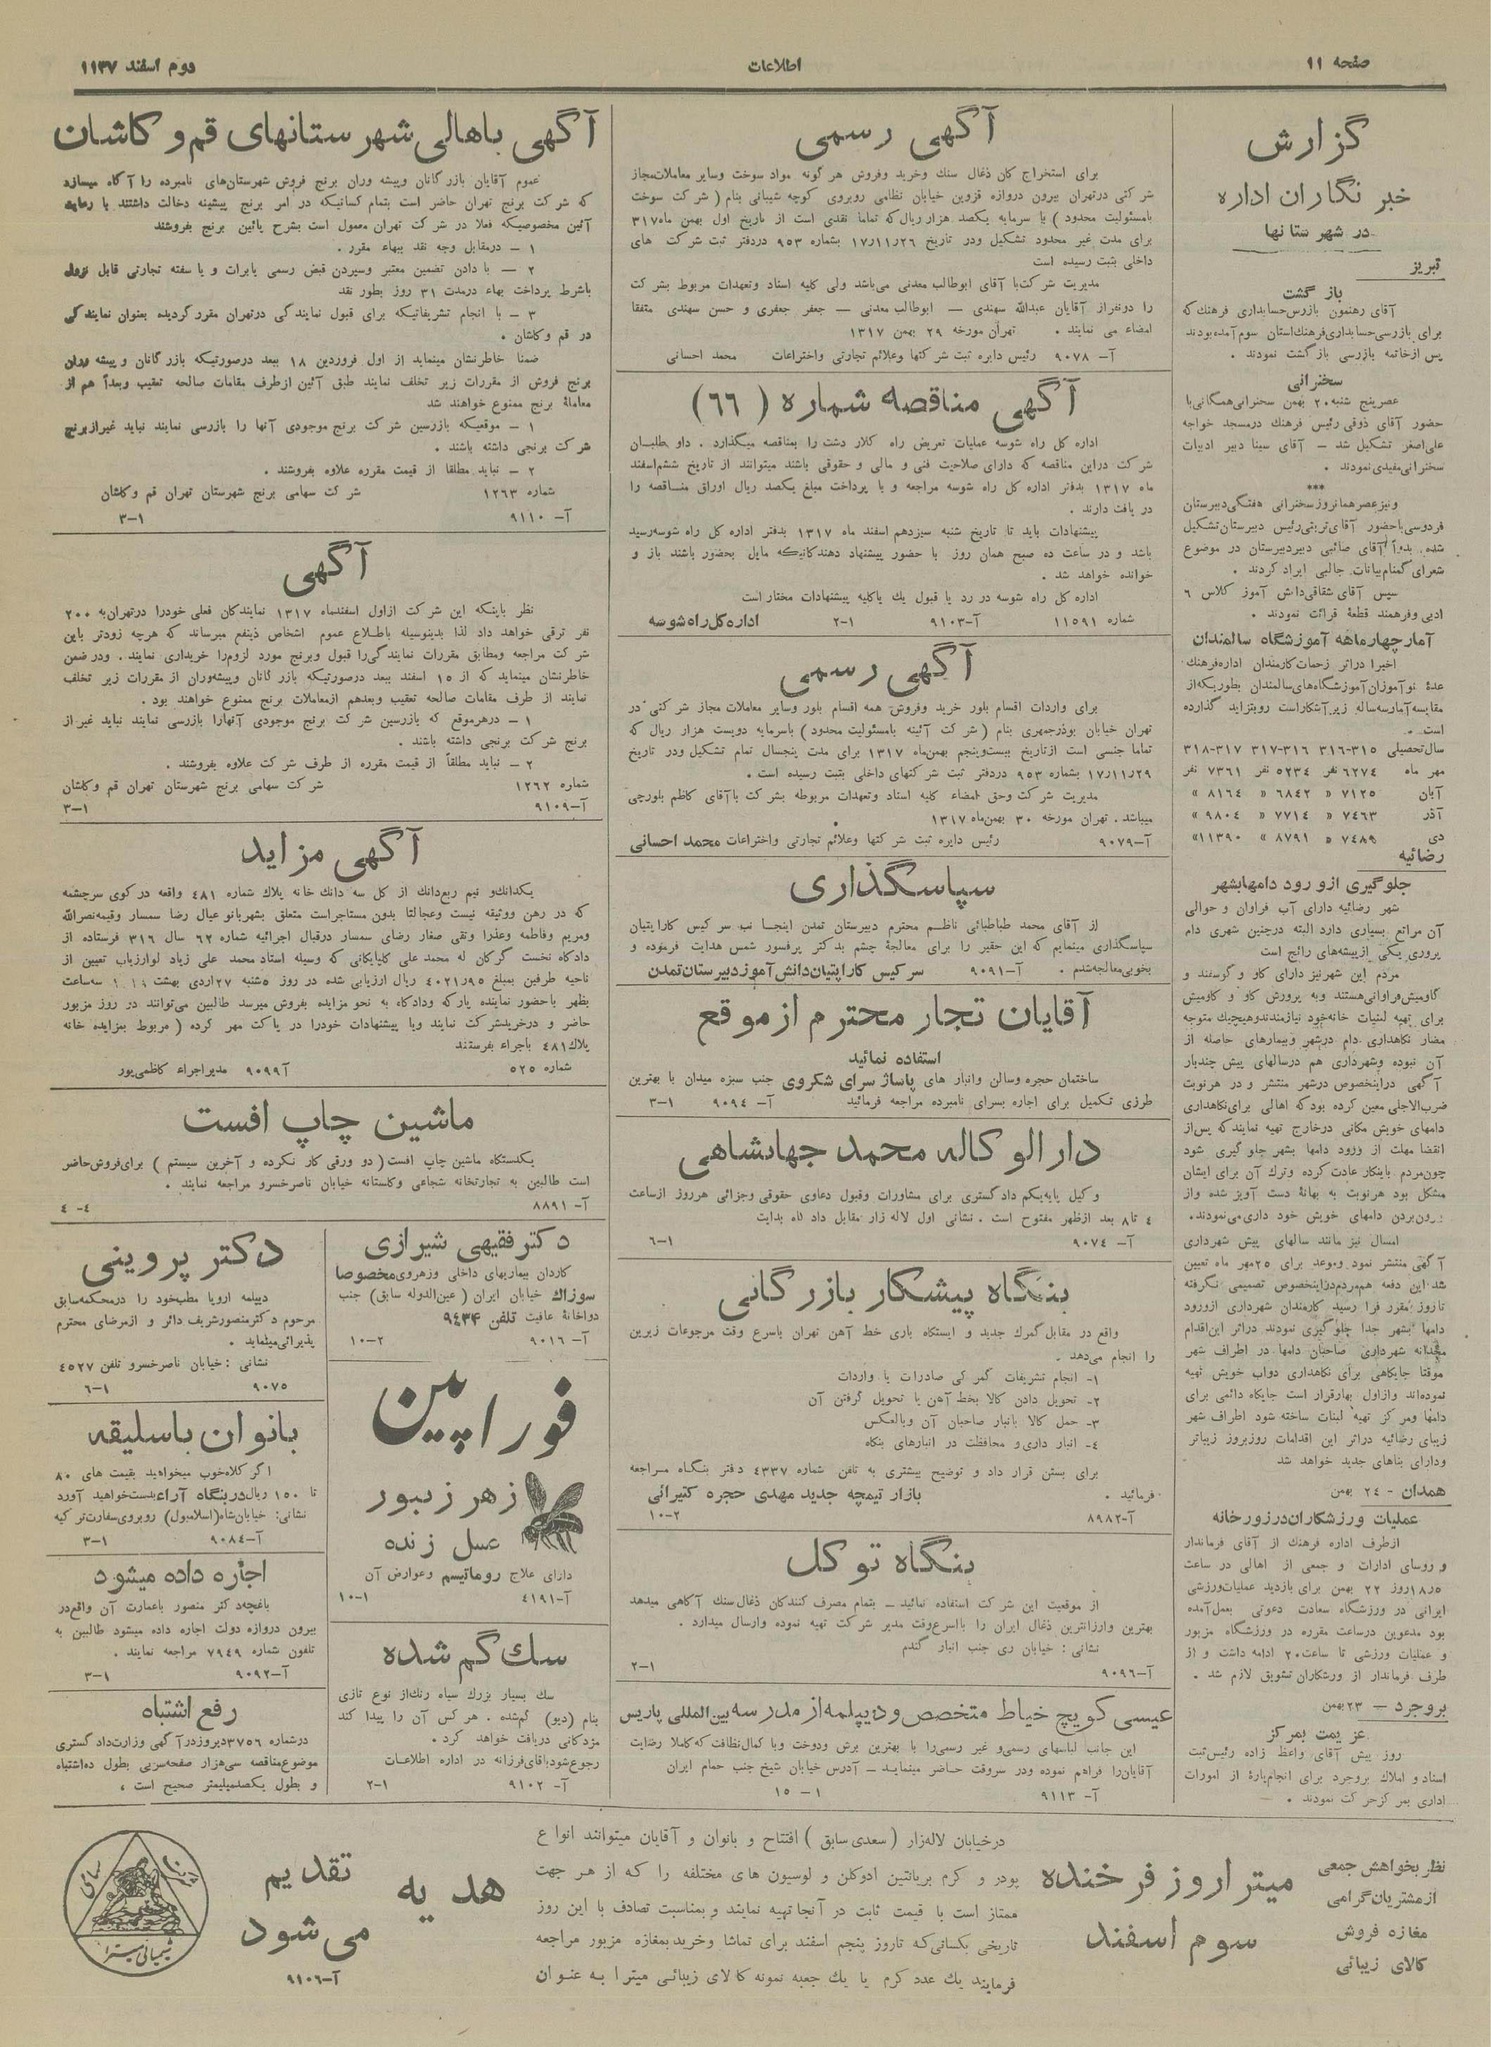 صفحه ۱۱
اطلاعات
دوم اسفند ۱۱۳۷
گزارش
خبر نگاران اداره
در شهرستانها
تبریز
باز گشت
آقای رهنمون بازرس حسابداری فرهنگ که
برای بازرسی حسابداری فرهنگ استان سوم آمده بودند
پس از خاتمه بازرسی باز گشت نمودند .
سخنرانی
عصر پنج شنبه ۲۰ بهمن سخنرانی همگانی با
حضور آقای ذوقی رئیس فرهنگ در مسجد خواجه
علی اصغر تشکیل شد – آقای سینا دبیر ادبیات
سخنرانی مفیدی نمودند .
***
و نیز عصر همانروز سخنرانی هفتگی دبیرستان
فردوسی با حضور آقای تربتی رئیس دبیرستان تشکیل
شده بدواً آقای صائبی دبیر دبیرستان در موضوع
شعرای گمنام بیانات جالبی ایراد کردند .
سپس آقای شقاقی دانش آموز کلاس ۶
ادبی و فرهمند قطعهٔ قرائت نمودند .
آمار چهار ماهه آموزشگاه سالمندان
اخیرا در اثر زحمات کارمندان اداره فرهنگ
عدهٔ نو آموزان آموزشگاه‌های سالمندان بطوریکه از
مقایسه آمار سه ساله زیر آشکار است رو بتزاید گذارده
است .
سال تحصیلی ۳۱۵-۳۱۶ ۳۱۶-۳۱۷ ۳۱۷-۳۱۸
مهر ماه ۶۲۷۴ نفر ۵۲۳۴ نفر ۷۳۶۱ نفر
آبان ۷۱۲۵ » ۶۸۴۲ » ۸۱۶۴ »
آذر ۷۴۶۳ » ۷۷۱۴ » ۹۸۰۴ »
دی ۷۴۸۹ » ۸۷۹۱ » ۱۱۳۹۰»
رضائیه
جلوگیری از ورود دامها بشهر
شهر رضائیه دارای آب فراوان و حوالی
آن مراتع بسیاری دارد البته در چنین شهری دام
پروری یکی از پیشه‌های رائج است
مردم این شهر نیز دارای گاو و گوسفند و
گاومیش فراوانی هستند و به پرورش گاو و گاومیش
برای تهیه لبنیات خانه خود نیازمندند و هیچیک متوجه
مضار نگاهداری دام در شهر و بیماریهای حاصله از
آن نبوده و شهرداری هم در سالهای پیش چندبار
آگهی در اینخصوص در شهر منتشر و در هر نوبت
ضرب‌الاجلی معین کرده بود که اهالی برای نگاهداری
دامهای خویش مکانی در خارج تهیه نمایند که پس از
انقضا مهلت از ورود دامها بشهر جلو گیری شود
چون مردم باینکار عادت کرده و ترک آن برای ایشان
مشکل بود هر نوبت به بهانهٔ دست آویز شده و از
برون بردن دامهای خویش خود داری می‌نمودند.
امسال نیز مانند سالهای پیش شهرداری
آگهی منتشر نمود و موعد برای ۲۵ مهر ماه تعیین
شد این دفعه هم مردم در اینخصوص تصمیمی نگرفته
تا روز مقرر فرا رسید کارمندان شهرداری از ورود
دامها بشهر جدا جلوگیری نمودند در اثر این اقدام
مجدانه شهرداری صاحبان دامها در اطراف شهر
موقتا جایگاهی برای نگاهداری دواب خویش تهیه
نموده‌اند و از اول بهار قرار است جایگاه دائمی برای
دامها و مرکز تهیه لبنیات ساخته شود اطراف شهر
زیبای رضائیه در اثر این اقدامات روز بروز زیباتر
و دارای بناهای جدید خواهد شد
همدان – ۲۴ بهمن
عملیات ورزشکاران در زور خانه
از طرف اداره فرهنگ از آقای فرماندار
و روسای ادارات و جمعی از اهالی در ساعت
۱۸ر۵ روز ۲۲ بهمن برای بازدید عملیات ورزشی
ایرانی در ورزشگاه سعادت دعوتی بعمل آمده
بود مدعوین در ساعت مقرره در ورزشگاه مزبور
و عملیات ورزشی تا ساعت ۲۰ ادامه داشت و از
طرف فرماندار از ورشکاران تشویق لازم شد .
بروجرد – ۲۳ بهمن
عزیمت بمرکز
روز پیش آقای واعظ زاده رئیس ثبت
اسناد و املاک بروجرد برای انجام پارهٔ از امورات
اداری بمر کز حر کت نمودند .
آگهی رسمی
برای استخراج کان ذغال سنگ و خرید و فروش هر گونه مواد سوخت و سایر معاملات مجاز
شرکتی در تهران بیرون دروازه قزوین خیابان نظامی روبروی کوچه شیبانی بنام ( شرکت سوخت
بامسئولیت محدود ) با سرمایه یکصد هزار ریال که تماما نقدی است از تاریخ اول بهمن ماه ۳۱۷
برای مدت غیر محدود تشکیل و در تاریخ ۲۶ر۱۱ر۱۷ بشماره ۹۵۳ در دفتر ثبت شرکت های
داخلی بثبت رسیده است
مدیریت شرکت با آقای ابوطالب معدنی می‌باشد ولی کلیه اسناد و تعهدات مربوط بشرکت
را دو نفر از آقایان عبدالله سهندی – ابوطالب معدنی – جعفر جعفری و حسن سهندی متفقا
امضاء می نمایند . تهران مورخه ۲۹ بهمن ۱۳۱۷
آ– ۹۰۷۸ رئیس دایره ثبت شرکتها و علائم تجارتی و اختراعات محمد احسانی
آگهی مناقصه شماره ( ۶۶ )
اداره کل راه شوسه عملیات تعریض راه کلار دشت را بمناقصه میگذارد . داوطلبان
شرکت در این مناقصه که دارای صلاحیت فنی و مالی و حقوقی باشند میتوانند از تاریخ ششم اسفند
ماه ۱۳۱۷ بدفتر اداره کل راه شوسه مراجعه و با پرداخت مبلغ یکصد ریال اوراق مناقصه را
در یافت دارند .
پیشنهادات باید تا تاریخ شنبه سیزدهم اسفند ماه ۱۳۱۷ بدفتر اداره کل راه شوسه رسید
باشد و در ساعت ده صبح همان روز با حضور پیشنهاد دهندگانیکه مایل بحضور باشند باز و
خوانده خواهد شد .
اداره کل راه شوسه در رد یا قبول یک یا کلیه پیشنهادات مختار است
شماره ۱۱۵۹۱ آ–۹۱۰۳ ۱-۲ اداره کل راه شوسه
آگهی رسمی
برای واردات اقسام بلور خرید و فروش همه اقسام بلور و سایر معاملات مجاز شرکتی در
تهران خیابان بوذرجمهری بنام ( شرکت آئینه بامسئولیت محدود ) باسرمایه دویست هزار ریال که
تماما جنسی است از تاریخ بیست و پنجم بهمن ماه ۱۳۱۷ برای مدت پنجسال تمام تشکیل و در تاریخ
۲۹ر۱۱ر۱۷ بشماره ۹۵۳ در دفتر ثبت شرکتهای داخلی بثبت رسیده است .
مدیریت شرکت و حق امضاء کلیه اسناد و تعهدات مربوطه بشرکت با آقای کاظم بلورچی
میباشد. تهران مورخه ۳۰ بهمن ماه ۱۳۱۷
آ–۹۰۷۹ رئیس دایره ثبت شرکتها و علائم تجارتی و اختراعات محمد احسانی
سپاسگذاری
از آقای محمد طباطبائی ناظم محترم دبیرستان تمدن اینجانب سرکیس کاراپتیان
سپاسگذاری مینمایم که این حقیر را برای معالجهٔ چشم بدکتر پرفسور شمس هدایت فرموده و
بخوبی معالجه شدم . آ–۹۰۹۱ سرکیس کاراپتیان دانش آموز دبیرستان تمدن
آقایان تجار محترم از موقع
استفاده نمائید
ساختمان حجره و سالن و انبار های پاساژ سرای شکروی جنب سبزه میدان با بهترین
طرزی تکمیل برای اجاره بسرای نامبرده مراجعه فرمائید آ– ۹۰۹۴ ۱-۳
دارالوکاله محمد جهانشاهی
وکیل پایه یکم دادگستری برای مشاورات و قبول دعاوی حقوقی و جزائی هر روز از ساعت
۴ تا ۸ بعد از ظهر مفتوح است . نشانی اول لاله زار مقابل دادگاه بدایت
آ– ۹۰۷۴ ۱-۶
بنگاه پیشکار بازرگانی
واقع در مقابل گمرک جدید و ایستگاه باری خط آهن تهران باسرع وقت مرجوعات زیرین
را انجام می‌دهد .
۱- انجام تشریفات گمرکی صادرات یا واردات
۲- تحویل دادن کالا بخط آهن یا تحویل گرفتن آن
۳- حمل کالا بانبار صاحبان آن و بالعکس
۴- انبار داری و محافظت در انبارهای بنگاه
برای بستن قرار داد و توضیح بیشتری به تلفن شماره ۴۳۳۷ دفتر بنگاه مراجعه
فرمائید . بازار تیمچه جدید مهدی حجره کتیرائی
آ–۸۹۸۲ ۲-۱۰
بنگاه توکل
از موقعیت این شرکت استفاده نمائید – بتمام مصرف کنندگان ذغال سنگ آگاهی میدهد
بهترین و ارزانترین ذغال ایران را بااسرع وقت مدیر شرکت تهیه نموده وارسال میدارد .
نشانی : خیابان ری جنب انبار گندم
آ–۹۰۹۶ ۱-۲
عیسی کویچ خیاط متخصص و دیپلمه از مدرسه بین‌المللی پاریس
این جانب لباسهای رسمی و غیر رسمی را با بهترین برش و دوخت و با کمال نظافت که کاملا رضایت
آقایان را فراهم نموده و در سروقت حاضر مینماید – آدرس خیابان شیخ جنب حمام ایران
آ– ۹۱۱۳ ۱ – ۱۵
آگهی باهالی شهرستانهای قم و کاشان
عموم آقایان بازرگانان و پیشه وران برنج فروش شهرستان‌های نامبرده را آگاه میسازد
که شرکت برنج تهران حاضر است بتمام کسانیکه در امر برنج پیشینه دخالت داشتند با رعایت
آئین مخصوصیکه فعلا در شرکت تهران معمول است بشرح پائین برنج بفروشند
۱ – در مقابل وجه نقد ببهاء مقرر .
۲ – با دادن تضمین معتبر و سپردن قبض رسمی یا برات و یا سفته تجارتی قابل نزول
باشرط پرداخت بهاء در مدت ۳۱ روز بطور نقد
۳ – با انجام تشریفاتیکه برای قبول نمایندگی در تهران مقرر گردیده بعنوان نمایندگی
در قم و کاشان .
ضمنا خاطرنشان مینماید از اول فروردین ۱۸ ببعد در صورتیکه بازرگانان و پیشه وران
برنج فروش از مقررات زیر تخلف نمایند طبق آئین از طرف مقامات صالحه تعقیب و بعداً هم از
معاملهٔ برنج ممنوع خواهند شد
۱ – موقعیکه بازرسین شرکت برنج موجودی آنها را بازرسی نمایند نباید غیر از برنج
شرکت برنجی داشته باشند .
۲ – نباید مطلقا از قیمت مقرره علاوه بفروشند .
شماره ۱۲۶۳ شرکت سهامی برنج شهرستان تهران قم و کاشان
آ– ۹۱۱۰ ۱-۳
آگهی
نظر باینکه این شرکت از اول اسفند ماه ۱۳۱۷ نمایندگان فعلی خود را در تهران به ۲۰۰
نفر ترقی خواهد داد لذا بدینوسیله باطلاع عموم اشخاص ذینفع میرساند که هرچه زودتر باین
شرکت مراجعه و مطابق مقررات نمایندگی را قبول و برنج مورد لزوم را خریداری نمایند . و در ضمن
خاطرنشان مینماید که از ۱۵ اسفند ببعد در صورتیکه بازرگانان و پیشه‌وران از مقررات زیر تخلف
نمایند از طرف مقامات صالحه تعقیب و بعد هم از معاملات برنج ممنوع خواهند بود .
۱ – در هر موقع که بازرسین شرکت برنج موجودی آنها را بازرسی نمایند نباید غیر از
برنج شرکت برنجی داشته باشند .
۲ – نباید مطلقاً از قیمت مقرره از طرف شرکت علاوه بفروشند .
شماره ۱۲۶۲ شرکت سهامی برنج شهرستان تهران قم و کاشان
آ–۹۱۰۹ ۱-۳
آگهی مزاید
یکدانک و نیم ربع دانک از کل سه دانک خانه پلاک شماره ۴۸۱ واقعه در کوی سرچشمه
که در رهن و وثیقه نیست و عجالتا بدون مستاجر است متعلق بشهربانو عیال رضا سمسار و قیمه نصرالله
و مریم و فاطمه و عذرا و تقی صغار رضای سمسار در قبال اجرائیه شماره ۶۲ سال ۳۱۶ فرستاده از
دادگاه نخست گرگان له محمد علی گلپایگانی که وسیله استاد محمد علی زیاد لو ارزیاب تعیین از
ناحیه طرفین بمبلغ ۴۰۲۱ر۹۵ ریال ارزیابی شده در روز ۵ شنبه ۲۷ اردی بهشت سه ساعت
بظهر باحضور نماینده پارکه و دادگاه به نحو مزایده بفروش میرسد طالبین می‌توانند در روز مزبور
حاضر و در خرید شرکت نمایند و یا پیشنهادات خود را در پاکت مهر کرده ( مربوط بمزایده خانه
پلاک ۴۸۱ باجراء بفرستند
شماره ۵۲۵ آ ۹۰۹۹ مدیر اجراء کاظمی پور
ماشین چاپ افست
یکدستگاه ماشین چاپ افست ( دو ورقی کار نکرده و آخرین سیستم ) برای فروش حاضر
است طالبین به تجارتخانه شجاعی و کلستانه خیابان ناصرخسرو مراجعه نمایند .
آ– ۸۸۹۱ ۴- ۴
دکتر فقیهی شیرازی
کاردان بیماریهای داخلی و زهروی مخصوصا
سوزاک خیابان ایران ( عین‌الدوله سابق ) جنب
دواخانهٔ عافیت تلفن ۹۴۳۴
آ– ۹۰۱۶ ۲-۱۰
فوراپین
زهر زنبور
عسل زنده
دارای علاج روماتیسم و عوارض آن
آ–۴۱۹۱ ۱-۱۰
سگ گم شده
سگ بسیار بزرگ سیاه رنگ از نوع تازی
بنام (دیو) گم شده . هر کس آن را پیدا کند
مژدگانی دریافت خواهد کرد .
رجوع شود باقای فرزانه در اداره اطلاعات
آ– ۹۱۰۲ ۱-۲
دکتر پروینی
دیپلمه اروپا مطب خود را در محکمه سابق
مرحوم دکتر منصور شریف دائر و از مرضای محترم
پذیرائی مینماید .
نشانی : خیابان ناصر خسرو تلفن ۴۵۲۷
۹۰۷۵ ۱-۶
بانوان باسلیقه
اگر کلاه خوب میخواهید بقیمت های ۸۰
تا ۱۵۰ ریال در بنگاه آراء بدست خواهید آورد
نشانی: خیابان شاه (اسلامبول) روبروی سفارت ترکیه
آ–۹۰۸۴ ۱-۳
اجاره داده میشود
باغچه دکتر منصور باعمارت آن واقع در
بیرون دروازه دولت اجاره داده میشود طالبین به
تلفون شماره ۷۹۴۹ مراجعه نمایند .
آ–۹۰۹۲ ۱-۳
رفع اشتباه
در شماره ۳۷۵۶ دیروز در آگهی وزارت دادگستری
موضوع مناقصه سی هزار صفحه سربی بطول ده اشتباه
و بطول یکصد میلیمتر صحیح است .
نظر بخواهش جمعی
از مشتریان گرامی
مغازه فروش
کالای زیبائی
میترا روز فرخنده
سوم اسفند
در خیابان لاله‌زار ( سعدی سابق ) افتتاح و بانوان و آقایان میتوانند انواع
پودر و کرم بریانتین ادوکلن و لوسیون های مختلفه را که از هر جهت
ممتاز است با قیمت ثابت در آنجا تهیه نمایند و بمناسبت تصادف با این روز
تاریخی بکسانی که تا روز پنجم اسفند برای تماشا و خرید بمغازه مزبور مراجعه
فرمایند یک عدد کرم یا یک جعبه نمونه کالای زیبائی میترا به عنوان
هدیه
تقدیم
می‌شود
آ–۹۱۰۶